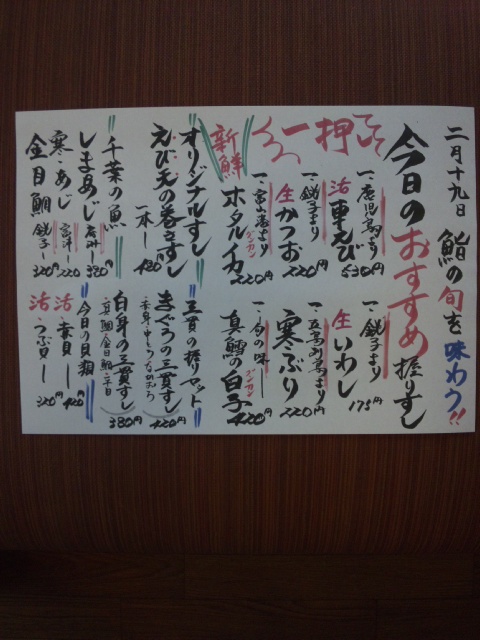 二月十九日 鮨の旬を味わう!!
今日のおすすめ握りずし
一押し
一、鹿児島より
活車えび 530円
一、銚子より
生いわし 175円
一、銚子より
生かつお 220円
一、五島列島より
寒ぶり 220円
新鮮
一、富山湾より
ホタルイカ グンカン 220円
一、旬の味
真鱈の白子 グンカン 220円
オリジナルすし
えび天の巻きずし
一本 480円
三貫の握りセット
まぐろの三貫ずし 420円
白身の三貫ずし
真鯛、金目鯛 380円
千葉の魚
しまあじ 380円
寒・あじ 富津 220
金目鯛 銚子 320円
今日の貝類
活 赤貝 420円
活 つぶ貝 320円